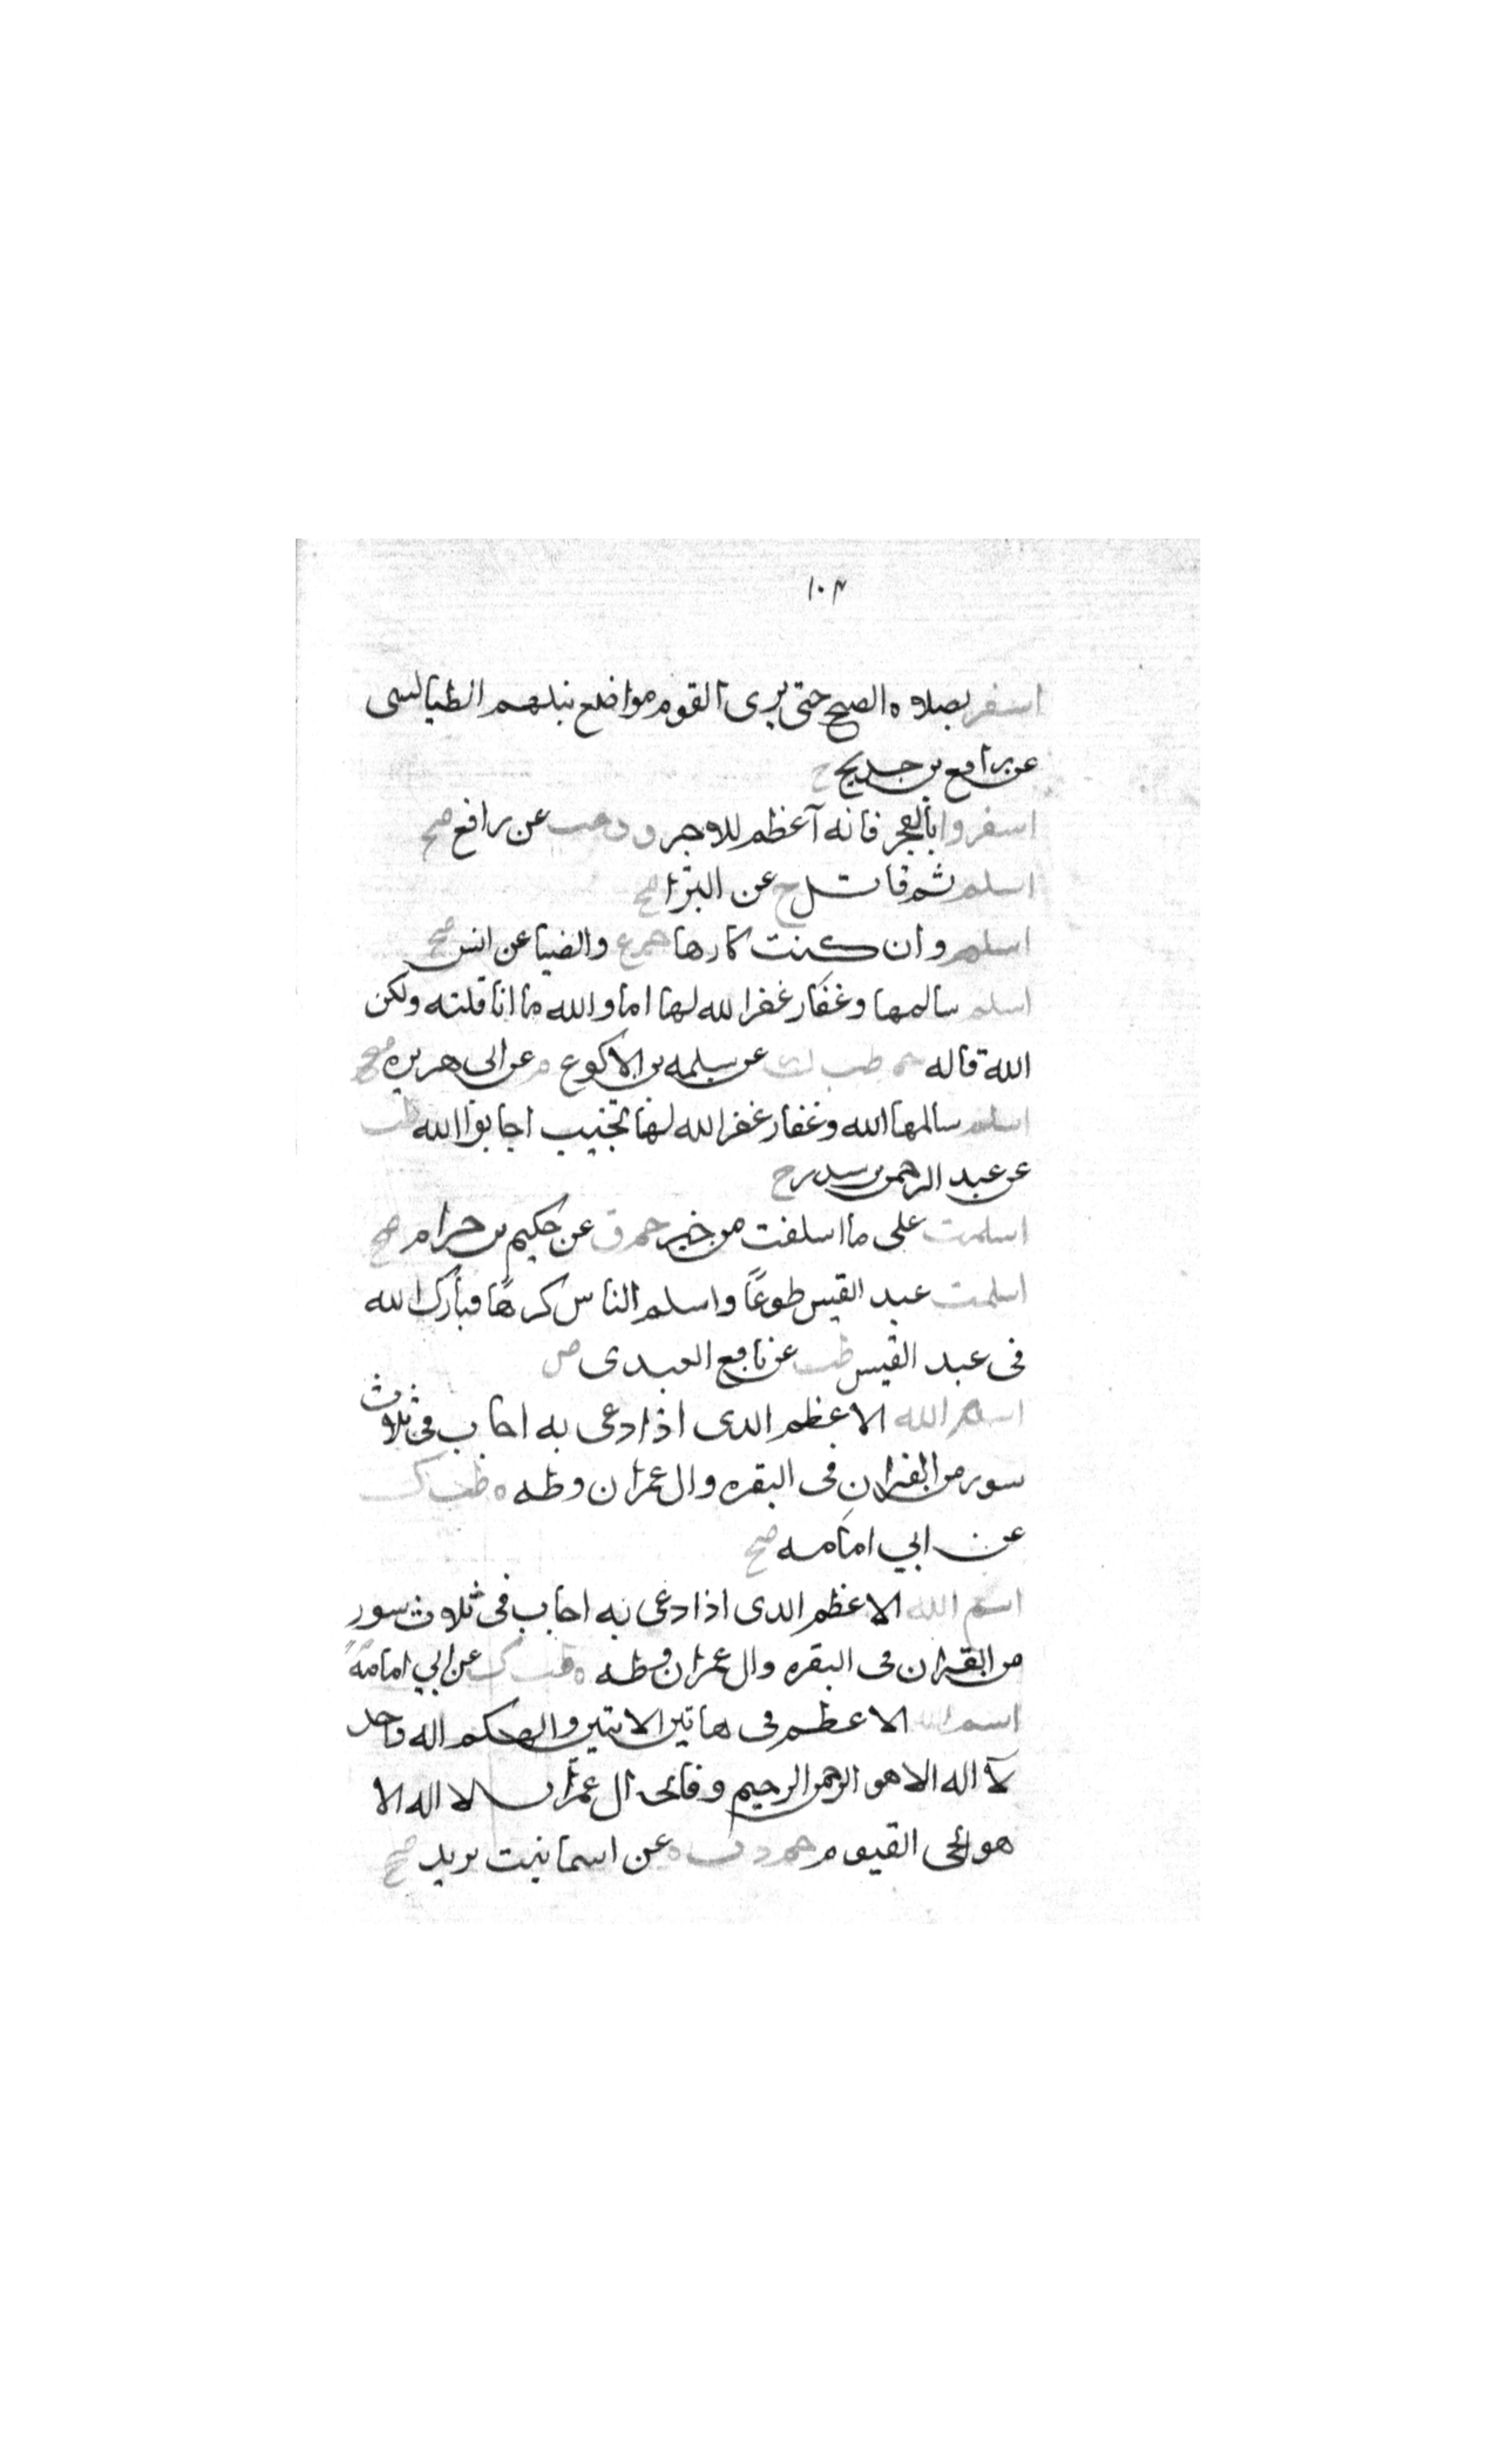 ١٠٢
اسفر بصلاه الصبح حتى يرى القوم مواضع نبلهم الطيالسى
عن رافع بن خديج ح
اسفروا بالفجر فانه أعظم للاجر عن رافع صح
اسلم ثم قاتل خ عن البرا صح
اسلم وان كنت كارها حم ع والضيا عن انس صح
اسلم سالمها وغفار غفر الله لها اما والله ما انا قلته ولكن
الله قاله حم طب ك عن سلمه بن الاكوع م عن ابى هريره صح
اسلم سالمها الله وغفار غفر الله لها تجيب اجابوا الله طب
عن عبد الرحمن بن سندر ح
اسلمت على ما اسلفت من خير حم ق عن حكيم بن حزام صح
اسلمت عبد القيس طوعًا واسلم الناس كرهًا فبارك الله
فى عبد القيس طب عن نافع العبدى ض
اسم الله الاعظم الدى اذا دعى به اجاب فى ثلاث
سور من القران فى البقره وال عمران وطه ه طب ك
عن ابي امامه صح
اسم الله الاعظم الدى اذا دعى به اجاب فى ثلاث سور
من القران فى البقره وال عمران وطه ه طب ك عن ابي امامه
اسم الله الاعظم فى هاتين الايتين والهكم اله واحد
لا اله الا هو الرحمن الرحيم وفاتحه ال عمران الم الله لا اله الا
هو الحى القيوم حم د ت ه عن اسما بنت يزيد صح